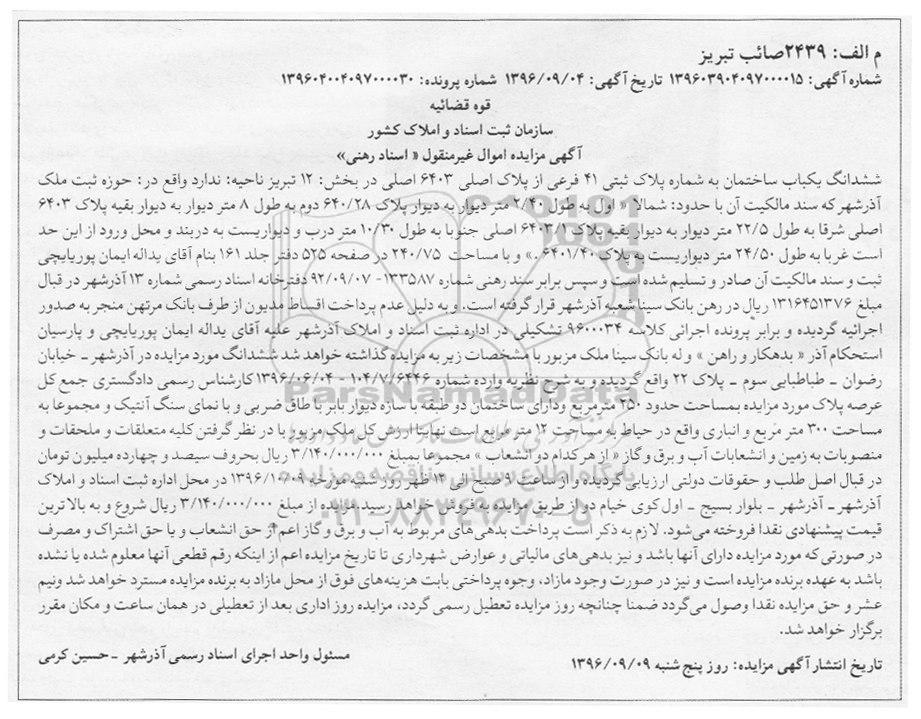 م الف: ۲۴۳۹صائب تبریز
شماره آگهی: ۱۳۹۶۰۳۹۰۴۰۹۷۰۰۰۰۱۵ تاریخ آگهی: ۱۳۹۶/۰۹/۰۴ شماره پرونده: ۱۳۹۶۰۴۰۰۴۰۹۷۰۰۰۰۳۰
قوه قضائیه
سازمان ثبت اسناد و املاک کشور
آگهی مزایده اموال غیرمنقول « اسناد رهنی»
ششدانگ یکباب ساختمان به شماره پلاک ثبتی ۴۱ فرعی از پلاک اصلی ۶۴۰۳ اصلی در بخش: ۱۲ تبریز ناحیه: ندارد واقع در: حوزه ثبت ملک
آذرشهر که سند مالکیت آن با حدود: شمالا « اول به طول ۲/۴۰ متر دیوار به دیوار پلاک ۶۴۰/۲۸ دوم به طول ۸ متر دیوار به دیوار بقیه پلاک ۶۴۰۳
اصلی شرقا به طول ۲۲/۵ متر دیوار به دیوار بقیه پلاک ۶۴۰۳/۱ اصلی جنوبا به طول ۱۰/۳۰ متر درب و دیواریست به دربند و محل ورود از این حد
است غربا به طول ۲۴/۵۰ متر دیواریست به پلاک ۶۴۰۱/۴۰ .» و با مساحت ۲۴۰/۷۵ در صفحه ۵۲۵ دفتر جلد ۱۶۱ بنام آقای یداله ایمان پوریاپچی
ثبت و سند مالکیت آن صادر و تسلیم شده است و سپس برابر سند رهنی شماره ۱۳۳۵۸۷- ۹۲/۰۹/۰۷ دفترخانه اسناد رسمی شماره ۱۳ آذرشهر در قبال
مبلغ ۱۳۱۶۴۵۱۳۷۶ ریال در رهن بانک سینا شعبه آذرشهر قرار گرفته است. و به دلیل عدم پرداخت اقساط مدیون از طرف بانک مرتهن منجر به صدور
اجرائیه گردیده و برابر پرونده اجرائی کلاسه ۹۶۰۰۰۳۴ تشکیلی در اداره ثبت اسناد و املاک آذرشهر علیه آقای یداله ایمان پوریاپچی و پارسیان
استحکام آذر « بدهکار و راهن » و له بانک سینا ملک مزبور با مشخصات زیر به مزایده گذاشته خواهد شد ششدانگ مورد مزایده در آذرشهر ـ خیابان
رضوان ـ طباطبایی سوم ـ پلاک ۲۲ واقع گردیده و به شرح نظریه وارده شماره ۱۰۴/۷/۶۴۴۶ - ۱۳۹۶/۰۶/۰۴ کارشناس رسمی دادگستری جمع کل
عرصه پلاک مورد مزایده بمساحت حدود ۲۵۰ مترمربع ودارای ساختمان دو طبقه با سازه دیوار بابر با طاق ضربی و با نمای سنگ آنتیک و مجموعا به
مساحت ۳۰۰ متر مربع و انباری واقع در حیاط به مساحت ۱۲ مترمربع است نهایتا ارزش کل ملک مزبور با در نظر گرفتن کلیه متعلقات و ملحقات و
منصوبات به زمین و انشعابات آب و برق و گاز « از هر کدام دو انشعاب » مجموعا بمبلغ ۳/۱۴۰/۰۰۰/۰۰۰ ریال بحروف سیصد و چهارده میلیون تومان
در قبال اصل طلب و حقوقات دولتی ارزیابی گردیده و از ساعت ۹ صبح الی ۱۲ ظهر روز شنبه مورخه ۱۳۹۶/۱۰/۰۹ در محل اداره ثبت اسناد و املاک
آذرشهر ـ آذرشهر ـ بلوار بسیج ـ اول کوی خیام دو از طریق مزایده به فروش خواهد رسید. مزایده از مبلغ ۳/۱۴۰/۰۰۰/۰۰۰ ریال شروع و به بالاترین
قیمت پیشنهادی نقدا فروخته می‌شود. لازم به ذکر است پرداخت بدهی‌های مربوط به آب و برق و گاز اعم از حق انشعاب و یا حق اشتراک و مصرف
در صورتی که مورد مزایده دارای آنها باشد و نیز بدهی‌های مالیاتی و عوارض شهرداری تا تاریخ مزایده اعم از اینکه رقم قطعی آنها معلوم شده یا نشده
باشد به عهده برنده مزایده است و نیز در صورت وجود مازاد، وجوه پرداختی بابت هزینه‌های فوق از محل مازاد به برنده مزایده مسترد خواهد شد ونیم
عشر و حق مزایده نقدا وصول می‌گردد ضمنا چنانچه روز مزایده تعطیل رسمی گردد، مزایده روز اداری بعد از تعطیلی در همان ساعت و مکان مقرر
برگزار خواهد شد.
تاریخ انتشار آگهی مزایده: روز پنج شنبه ۱۳۹۶/۰۹/۰۹
مسئول واحد اجرای اسناد رسمی آذرشهر ـ حسین کرمی
ParsNamadData
پایگاه اطلاع رسانی مناقصه و مزایده
۰۲۱-۸۸۳۴۹۶۷۰-۵